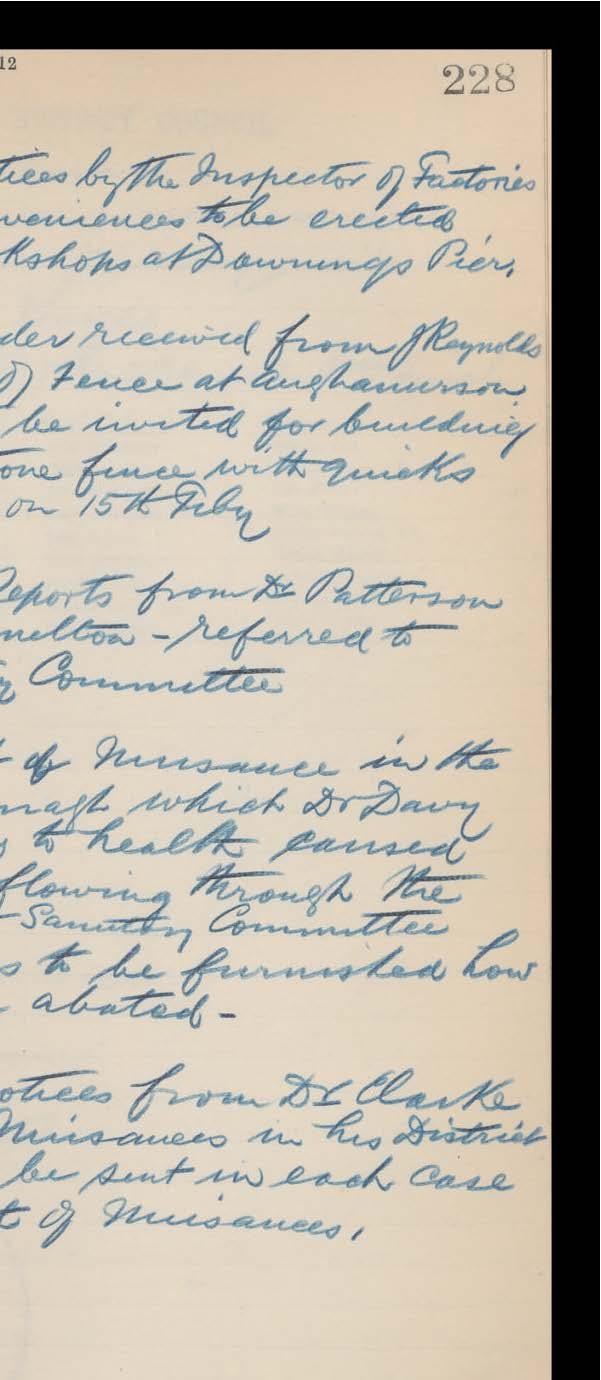 12
228
tices by the Inspector of Factories
veniences to be erected
kshops at Downings Pier,
der received from J Reynolds
of Fence at
be invited for building
one fence with quicks
on 15th Feby
Reports from Dr Patterson
milton - referred to
y Committee
t of Nuisance in the
nagh which Dr Davy
to health caused
flowing through the
Sanitary Committee
s to be furnished how
abated -
otices from Dr Clarke
Nuisances in his District
be sent in each case
t of Nuisances,